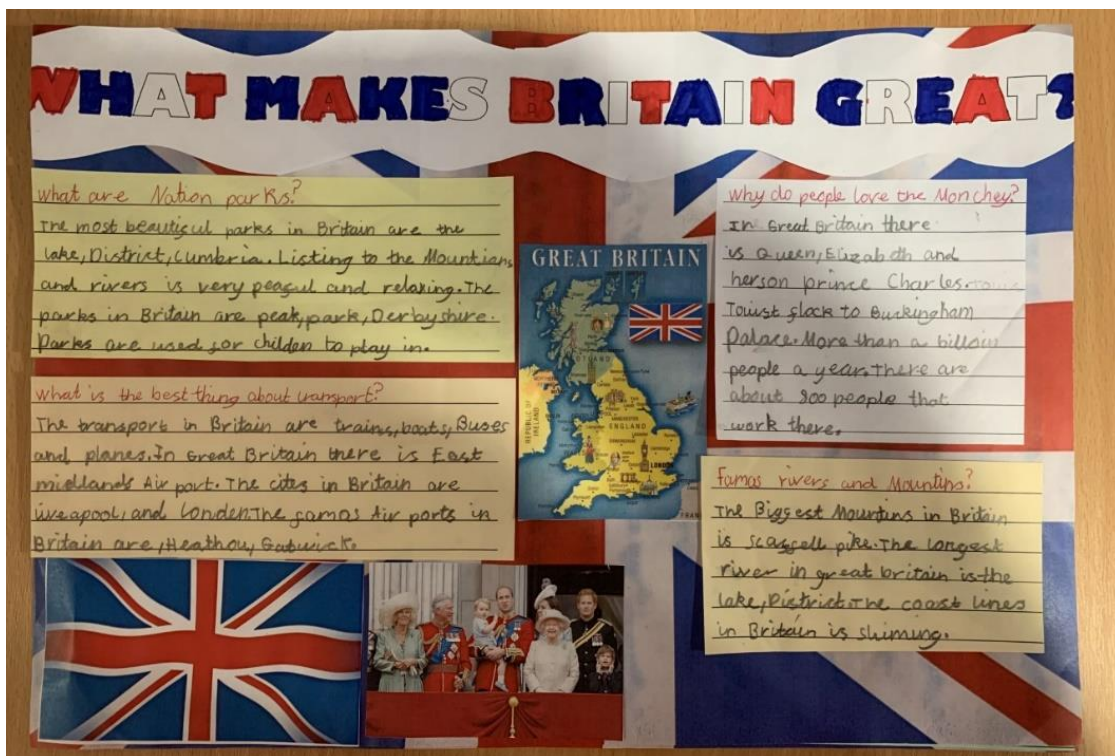 WHAT MAKES BRITAIN GREAT?
What are Nation parks?
The most beautiful parks in Britain are the
lake, District, Cumbria. Listing to the Mountians
and rivers is very peagul and relaxing. The
parks in Britain are peak, park, Derbyshire.
Parks are used for childen to play in.
What is the best thing about transport?
The transport in Britain are trains, boats, Buses
and planes. In Great Britain there is East
midlands Air port. The cites in Britain are
liveapool, and London. The famos Air ports in
Britain are, Heathou, Gatwick.
GREAT BRITAIN
REPUBLIC OF
IRELAND
ENGLAND
LONDON
Why do people love the Monchey?
In Great Britain there
is Queen, Elizabeth and
herson prince Charles.
Tourist flock to Burkingham
Palace. More than a billoin
people a year. There are
about 900 people that
work there.
Famos rivers and Mountins?
The Biggest Mountins in Britain
is scafell pike. The longest
river in great britain is the
lake, District. The coast lines
in Britain is shiming.